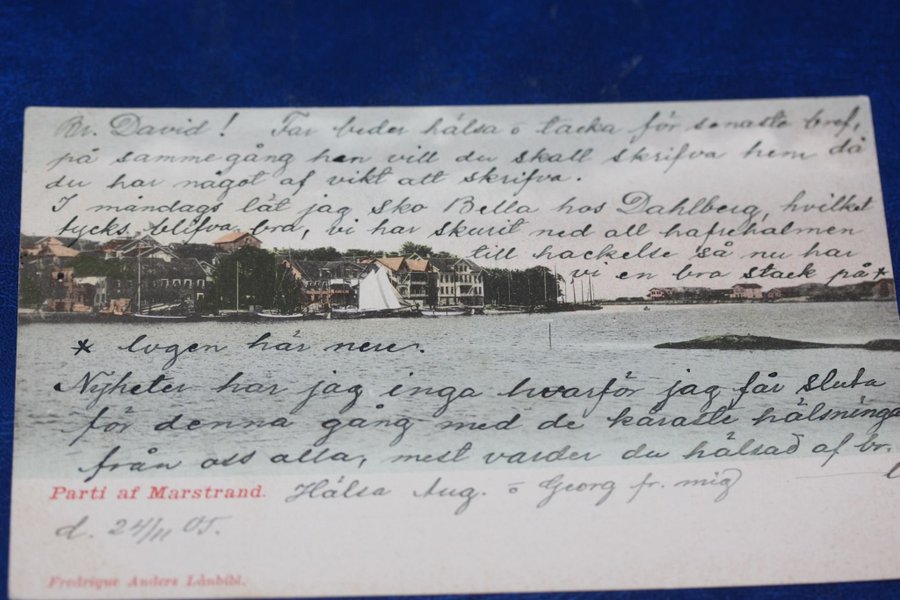 Br. David! Far beder hälsa o tacka för senaste bref,
på samma gång han vill du skall skrifva hem då
du har något af vikt att skrifva.
I måndags lät jag sko Bella hos Dahlberg, hvilket
tycks blifva bra, vi har skurit ned all hafrehalmen
till hackelse så nu har
vi en bra stack på *
* logen här nere.
Nyheter har jag inga hvarför jag får sluta
för denna gång med de käraste hälsninga
från oss alla, mest varder du hälsad af br.
Parti af Marstrand. Hälsa Aug. o Georg fr. mig
d. 24/11 05.
Fredrique Anders Lånbibl.